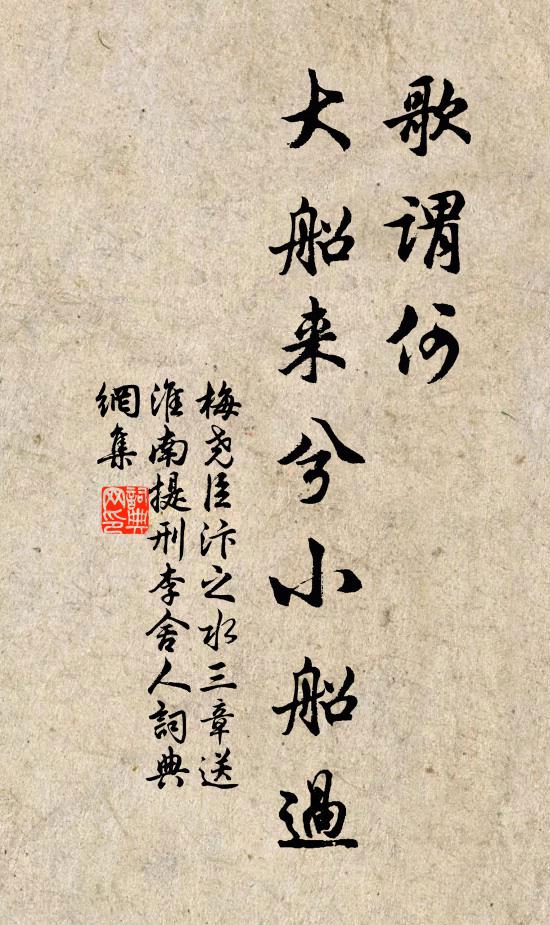 歌謂何
大船来兮小船過
梅尧臣汴之水三章送
淮南提刑李舍人詞典
網集
詞典
网印